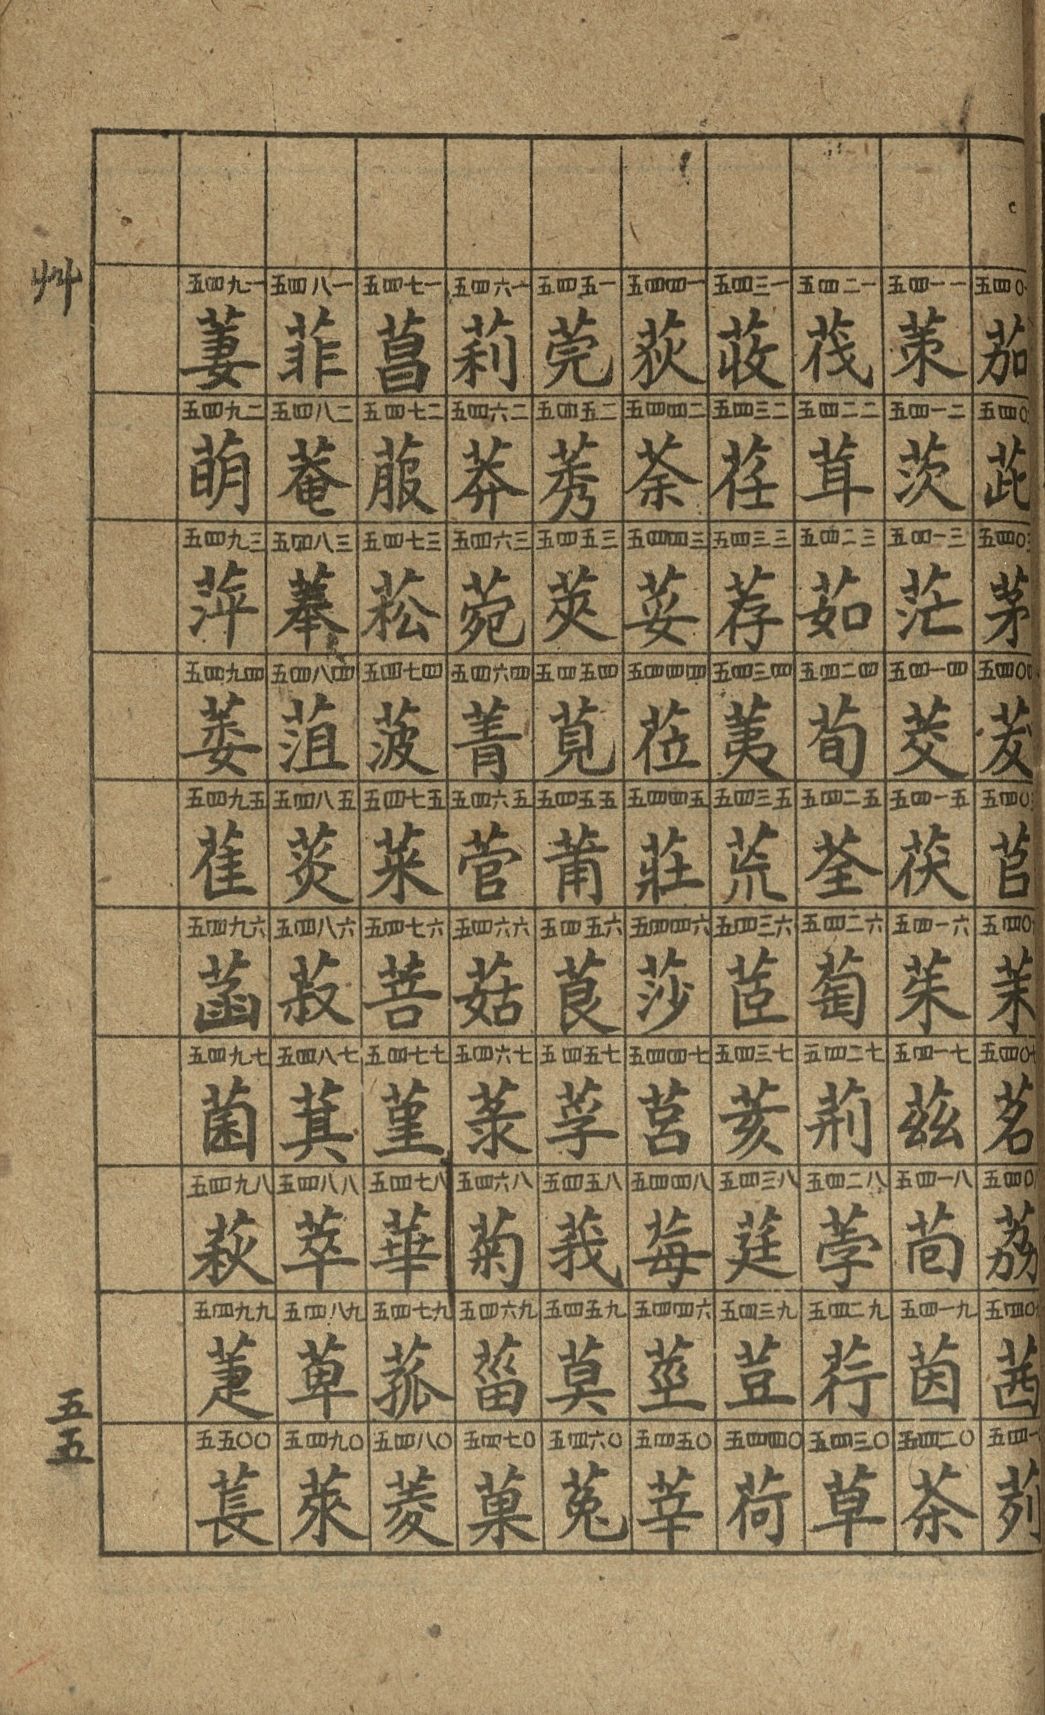 艸
五四〇
茄
五四〇
茈
五四〇
茅
五四〇
茇
五四〇
苢
五四〇
茉
五四〇
茗
五四〇
荔
五四〇
茜
五四一
茢
五四一一
茦
五四一二
茨
五四一三
茫
五四一四
茭
五四一五
茯
五四一六
茱
五四一七
茲
五四一八
茴
五四一九
茵
五四二〇
茶
五四二一
茷
五四二二
茸
五四二三
茹
五四二四
荀
五四二五
荃
五四二六
萄
五四二七
荊
五四二八
荂
五四二九
荇
五四三〇
草
五四三一
荍
五四三二
荏
五四三三
荐
五四三四
荑
五四三五
荒
五四三六
茞
五四三七
荄
五四三八
莛
五四三九
荳
五四四〇
荷
五四四一
荻
五四四二
荼
五四四三
荽
五四四四
莅
五四四五
莊
五四四六
莎
五四四七
莒
五四四八
莓
五四四六
莖
五四五〇
莘
五四五一
莞
五四五二
莠
五四五三
莢
五四五四
莧
五四五五
莆
五四五六
莨
五四五七
莩
五四五八
莪
五四五九
莫
五四六〇
莬
五四六一
莉
五四六二
莽
五四六三
菀
五四六四
菁
五四六五
菅
五四六六
菇
五四六七
菉
五四六八
菊
五四六九
菑
五四七〇
菓
五四七一
菖
五四七二
菔
五四七三
菘
五四七四
菠
五四七五
菜
五四七六
菩
五四七七
菫
五四七八
華
五四七九
菰
五四八〇
菱
五四八一
菲
五四八二
菴
五四八三
菶
五四八四
菹
五四八五
菼
五四八六
菽
五四八七
萁
五四八八
萃
五四八九
萆
五四九〇
萊
五四九一
萋
五四九二
萌
五四九三
萍
五四九四
萎
五四九五
萑
五四九六
菡
五四九七
菌
五四九八
萩
五四九九
萐
五五〇〇
萇
五五